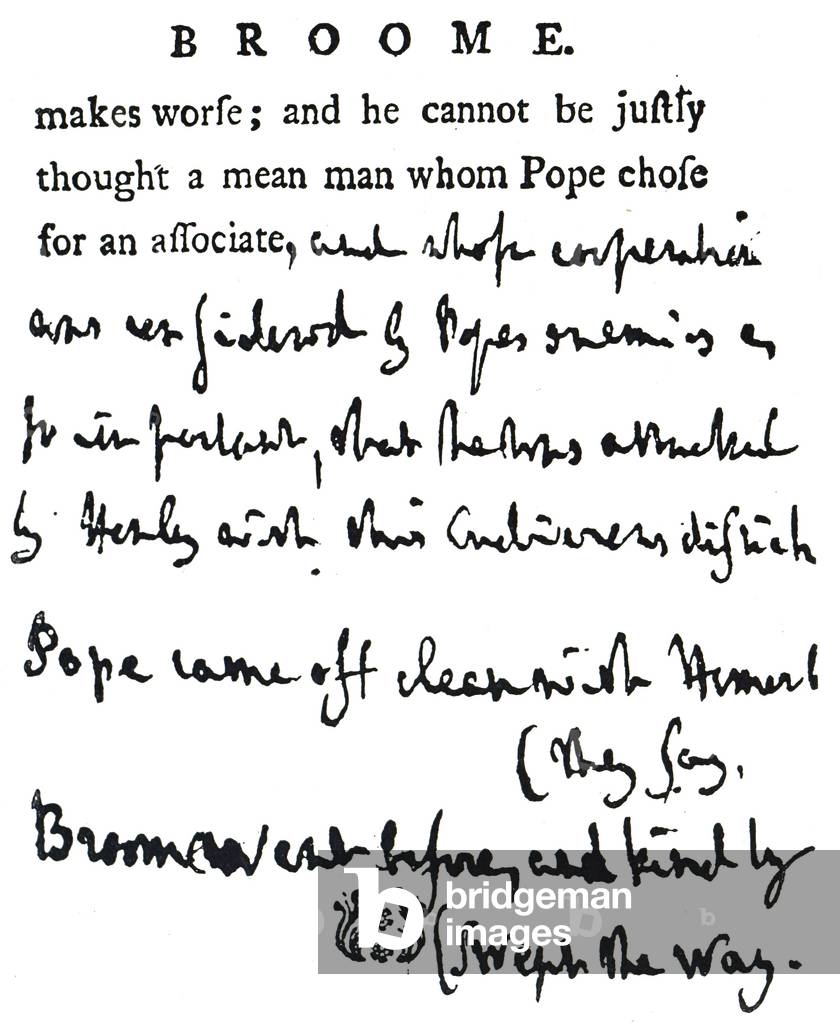 BROOME.
makes worſe; and he cannot be juſtly
thought a mean man whom Pope choſe
for an aſſociate, and whose cooperation
was conſidered by Popes enemies as
so important, that he was attacked
by Henley with this Ludicrous diſtich
Pope came off clean with Homer
(they ſay,
Broome went before, and kindly
(Swept the way.
bridgeman
images